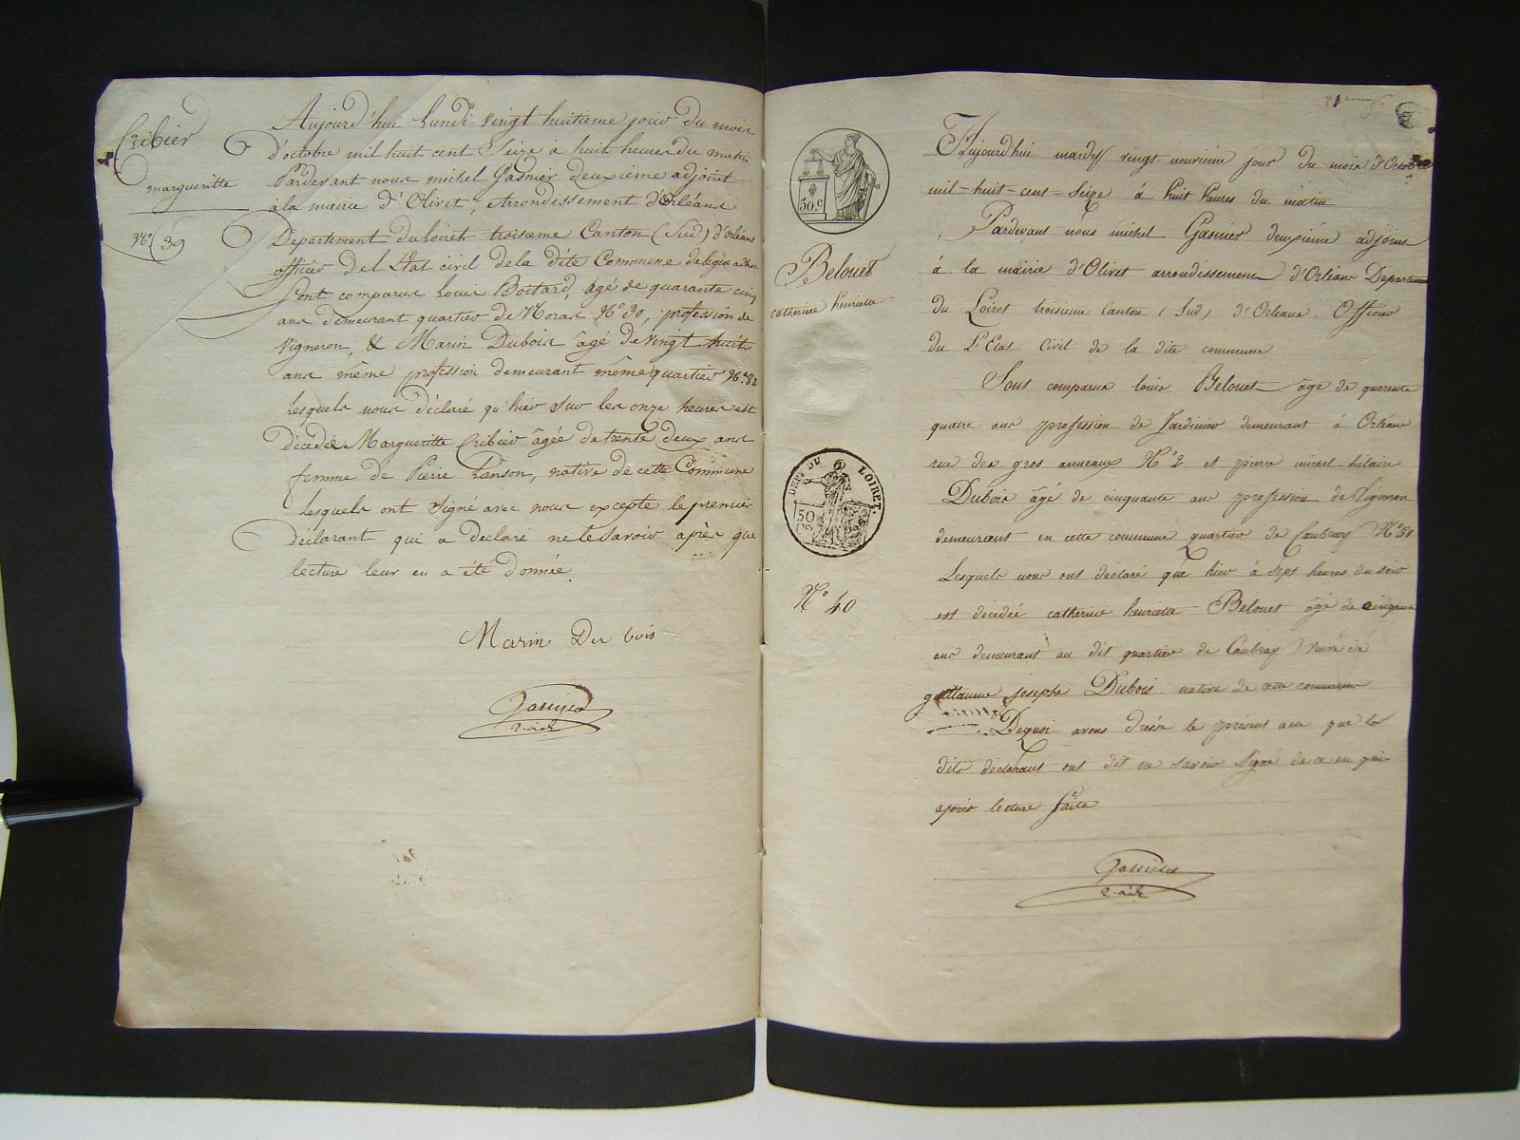 Cribier
margueritte
N.º 39
Aujourd'hui Lundi vingt huitieme jour du mois
d'octobre mil huit cent Seize a huit heures du matin
Pardevant nous michel Gasnier deuxieme adjoint
a la mairie d'Olivet, Arrondissement d'Orléans
Departement du Loiret troisieme Canton (Sud) d'orléans
officier del Etat civil de la dite Commune
Sont comparus Louis Boitard, agé de quarante cinq
ans demeurant quartier de Noras N.º 30, profession de
vigneron, & Marin Dubois âgé de vingt huit
ans même profession demeurant même quartier N.º 32
lesquels nous déclaré qu'hier sur les onze heures est
décedée Margueritte Cribier âgée de trente deux ans
femme de Pierre Lanson, native de cette Commune
lesquels ont signé avec nous excepté le premier
déclarant qui a declaré ne le savoir après que
lecture leur en a été donnée.
Marin Du bois
Gasnier
50.C
Belouet
catherine henriette
DEPT DU LOIRET.
50
N.º 40
Aujourd'hui mardy vingt neuvieme jour du mois d'Octobre
mil-huit-cent-Seize à huit heures du matin
Pardevant nous michel Gasnier deuxieme adjoint
à la mairie d'Olivet arrondissement d'Orléans Departement
du Loiret troisieme Canton (Sud) d'Orleans. Officier
du L'Etat Civil de la dite commune
Sont comparus louis Belouet âgé de quarente
quatre ans profession de Jardinier demeurant à Orléans
rue des gros anneaux N.º 2 et pierre michel hilaire
Dubois âgé de cinquante ans profession de Vigneron
demeurant en cette commune quartier de Caubray N.º 31
Lesquels nous ont déclaré que hier à sept heures du soir
est décedée catherine henriette Belouet âgé de cinquante
ans demeurant au dit quartier de Caubray veuve de
guillaume joseph Dubois native de cette commune
Dequoi avons dressé le présent acte que les
dits déclarant ont dit ne savoir signé de ce enquis
après lecture faite
Gasnier